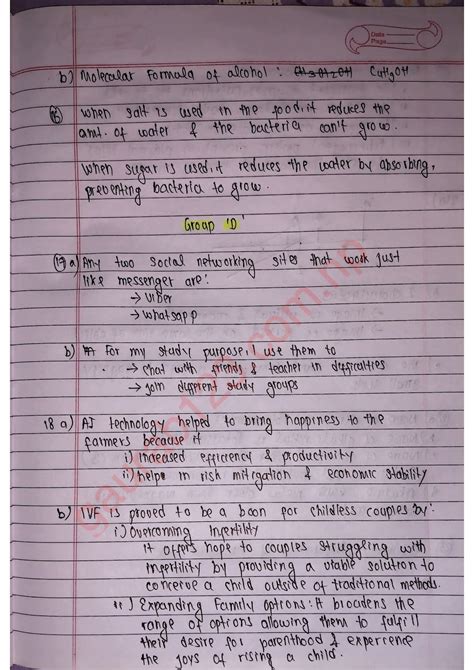 Date
Page
b) Molecular Formula of alcohol : CH3OH2OH C2H5OH
16) when salt is used in the food, it reduces the
amt. of water & the bacteria can't grow.
when sugar is used, it reduces the water by absorbing,
preventing bacteria to grow.
Group 'D'
17) a) Any two social networking sites that work just
like messenger are:
→ viber
→ whatsapp
b) For my study purpose, i use them to
→ chat with friends & teacher in difficulties
→ join different study groups
18 a) AI technology helped to bring happiness to the
farmers because it
i) increased efficiency & productivity
ii) helps in risk mitigation & economic stability
b) IVF is proved to be a boon for childless couples by:
i) Overcoming Infertility
it offers hope to couples struggling with
infertility by providing a viable solution to
conceive a child outside of traditional methods.
ii) Expanding Family options: It broadens the
range of options allowing them to fulfill
their desire for parenthood & experience
the joys of rising a child.